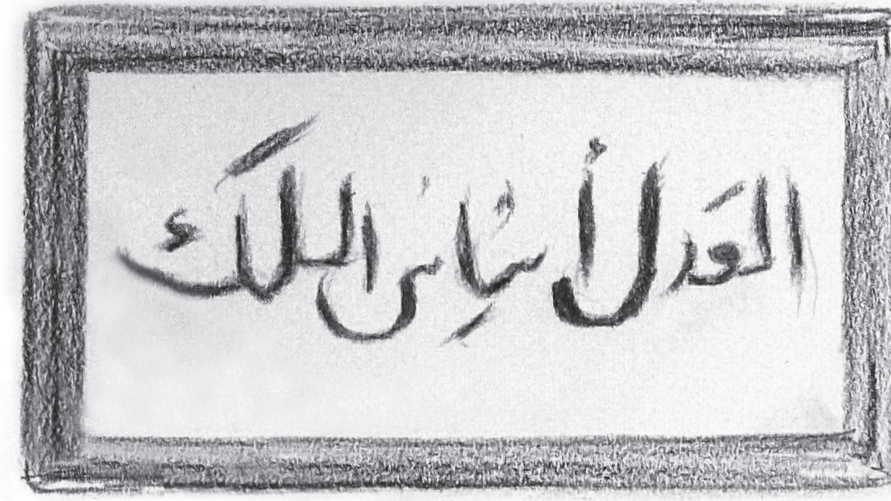 العَدل أساس الملك